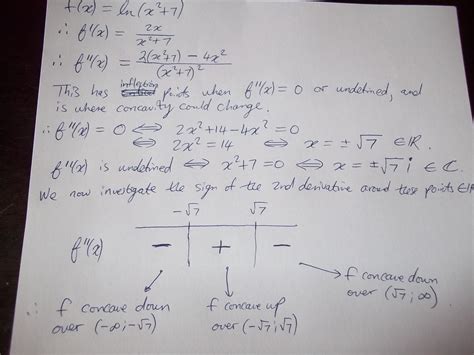 f(x) = ln(x²+7)
∴ f'(x) = 2x / (x²+7)
∴ f''(x) = (2(x²+7) − 4x²) / (x²+7)²
This has inflection points when f''(x) = 0 or undefined, and
is where concavity could change.
∴ f''(x) = 0 ⇔ 2x²+14−4x² = 0
⇔ 2x² = 14 ⇔ x = ±√7 ∈ ℝ.
f''(x) is undefined ⇔ x²+7=0 ⇔ x = ±√7 i ∈ ℂ.
We now investigate the sign of the 2nd derivative around these points ∈ ℝ
−√7 √7
f''(x) − + −
f concave down
over (√7;∞)
f concave down
over (−∞;−√7)
f concave up
over (−√7;√7)